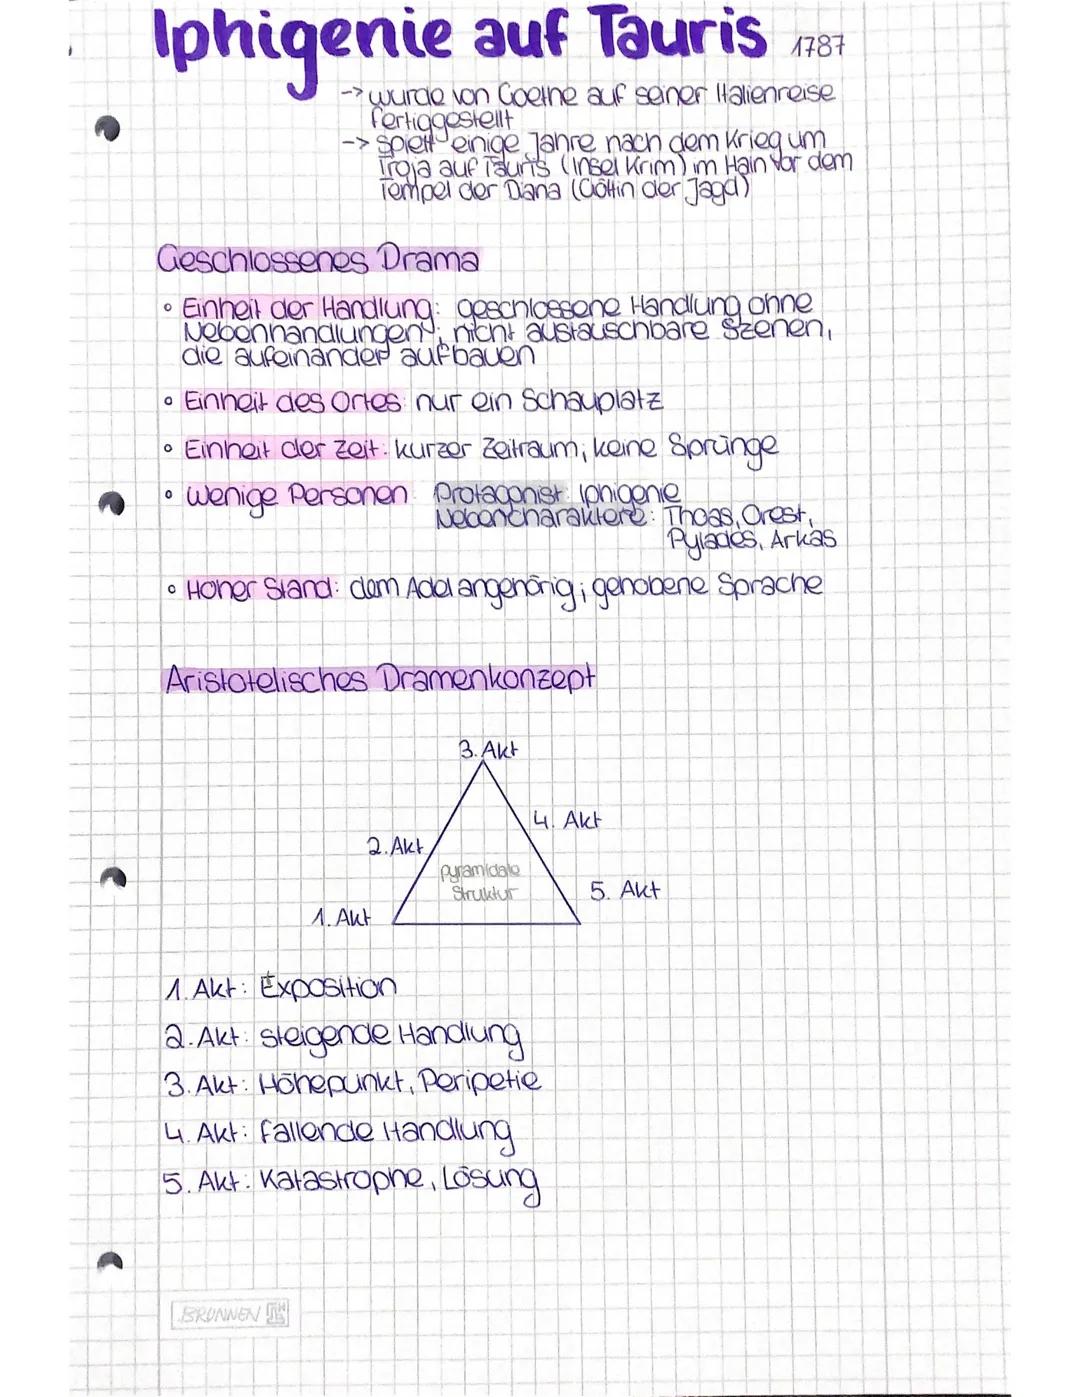 Iphigenie auf Tauris 1787
-> wurde von Goethe auf seiner Italienreise
fertiggestellt
-> spielt einige Jahre nach dem Krieg um
Troja auf Tauris (Insel Krim) im Hain vor dem
Tempel der Diana (Göttin der Jagd)
Geschlossenes Drama
• Einheit der Handlung: geschlossene Handlung ohne
Nebenhandlungen; nicht austauschbare Szenen,
die aufeinander aufbauen
• Einheit des Ortes: nur ein Schauplatz
• Einheit der Zeit: kurzer Zeitraum; keine Sprünge
• Wenige Personen: Protagonist: Iphigenie
Nebencharaktere: Thoas, Orest,
Pylades, Arkas
• Hoher Stand: dem Adel angehörig; gehobene Sprache
Aristotelisches Dramenkonzept
3. Akt
4. Akt
2. Akt
pyramidale
Struktur
5. Akt
1. Akt
1. Akt: Exposition
2. Akt: steigende Handlung
3. Akt: Höhepunkt, Peripetie
4. Akt: fallende Handlung
5. Akt: Katastrophe, Lösung
BRUNNEN